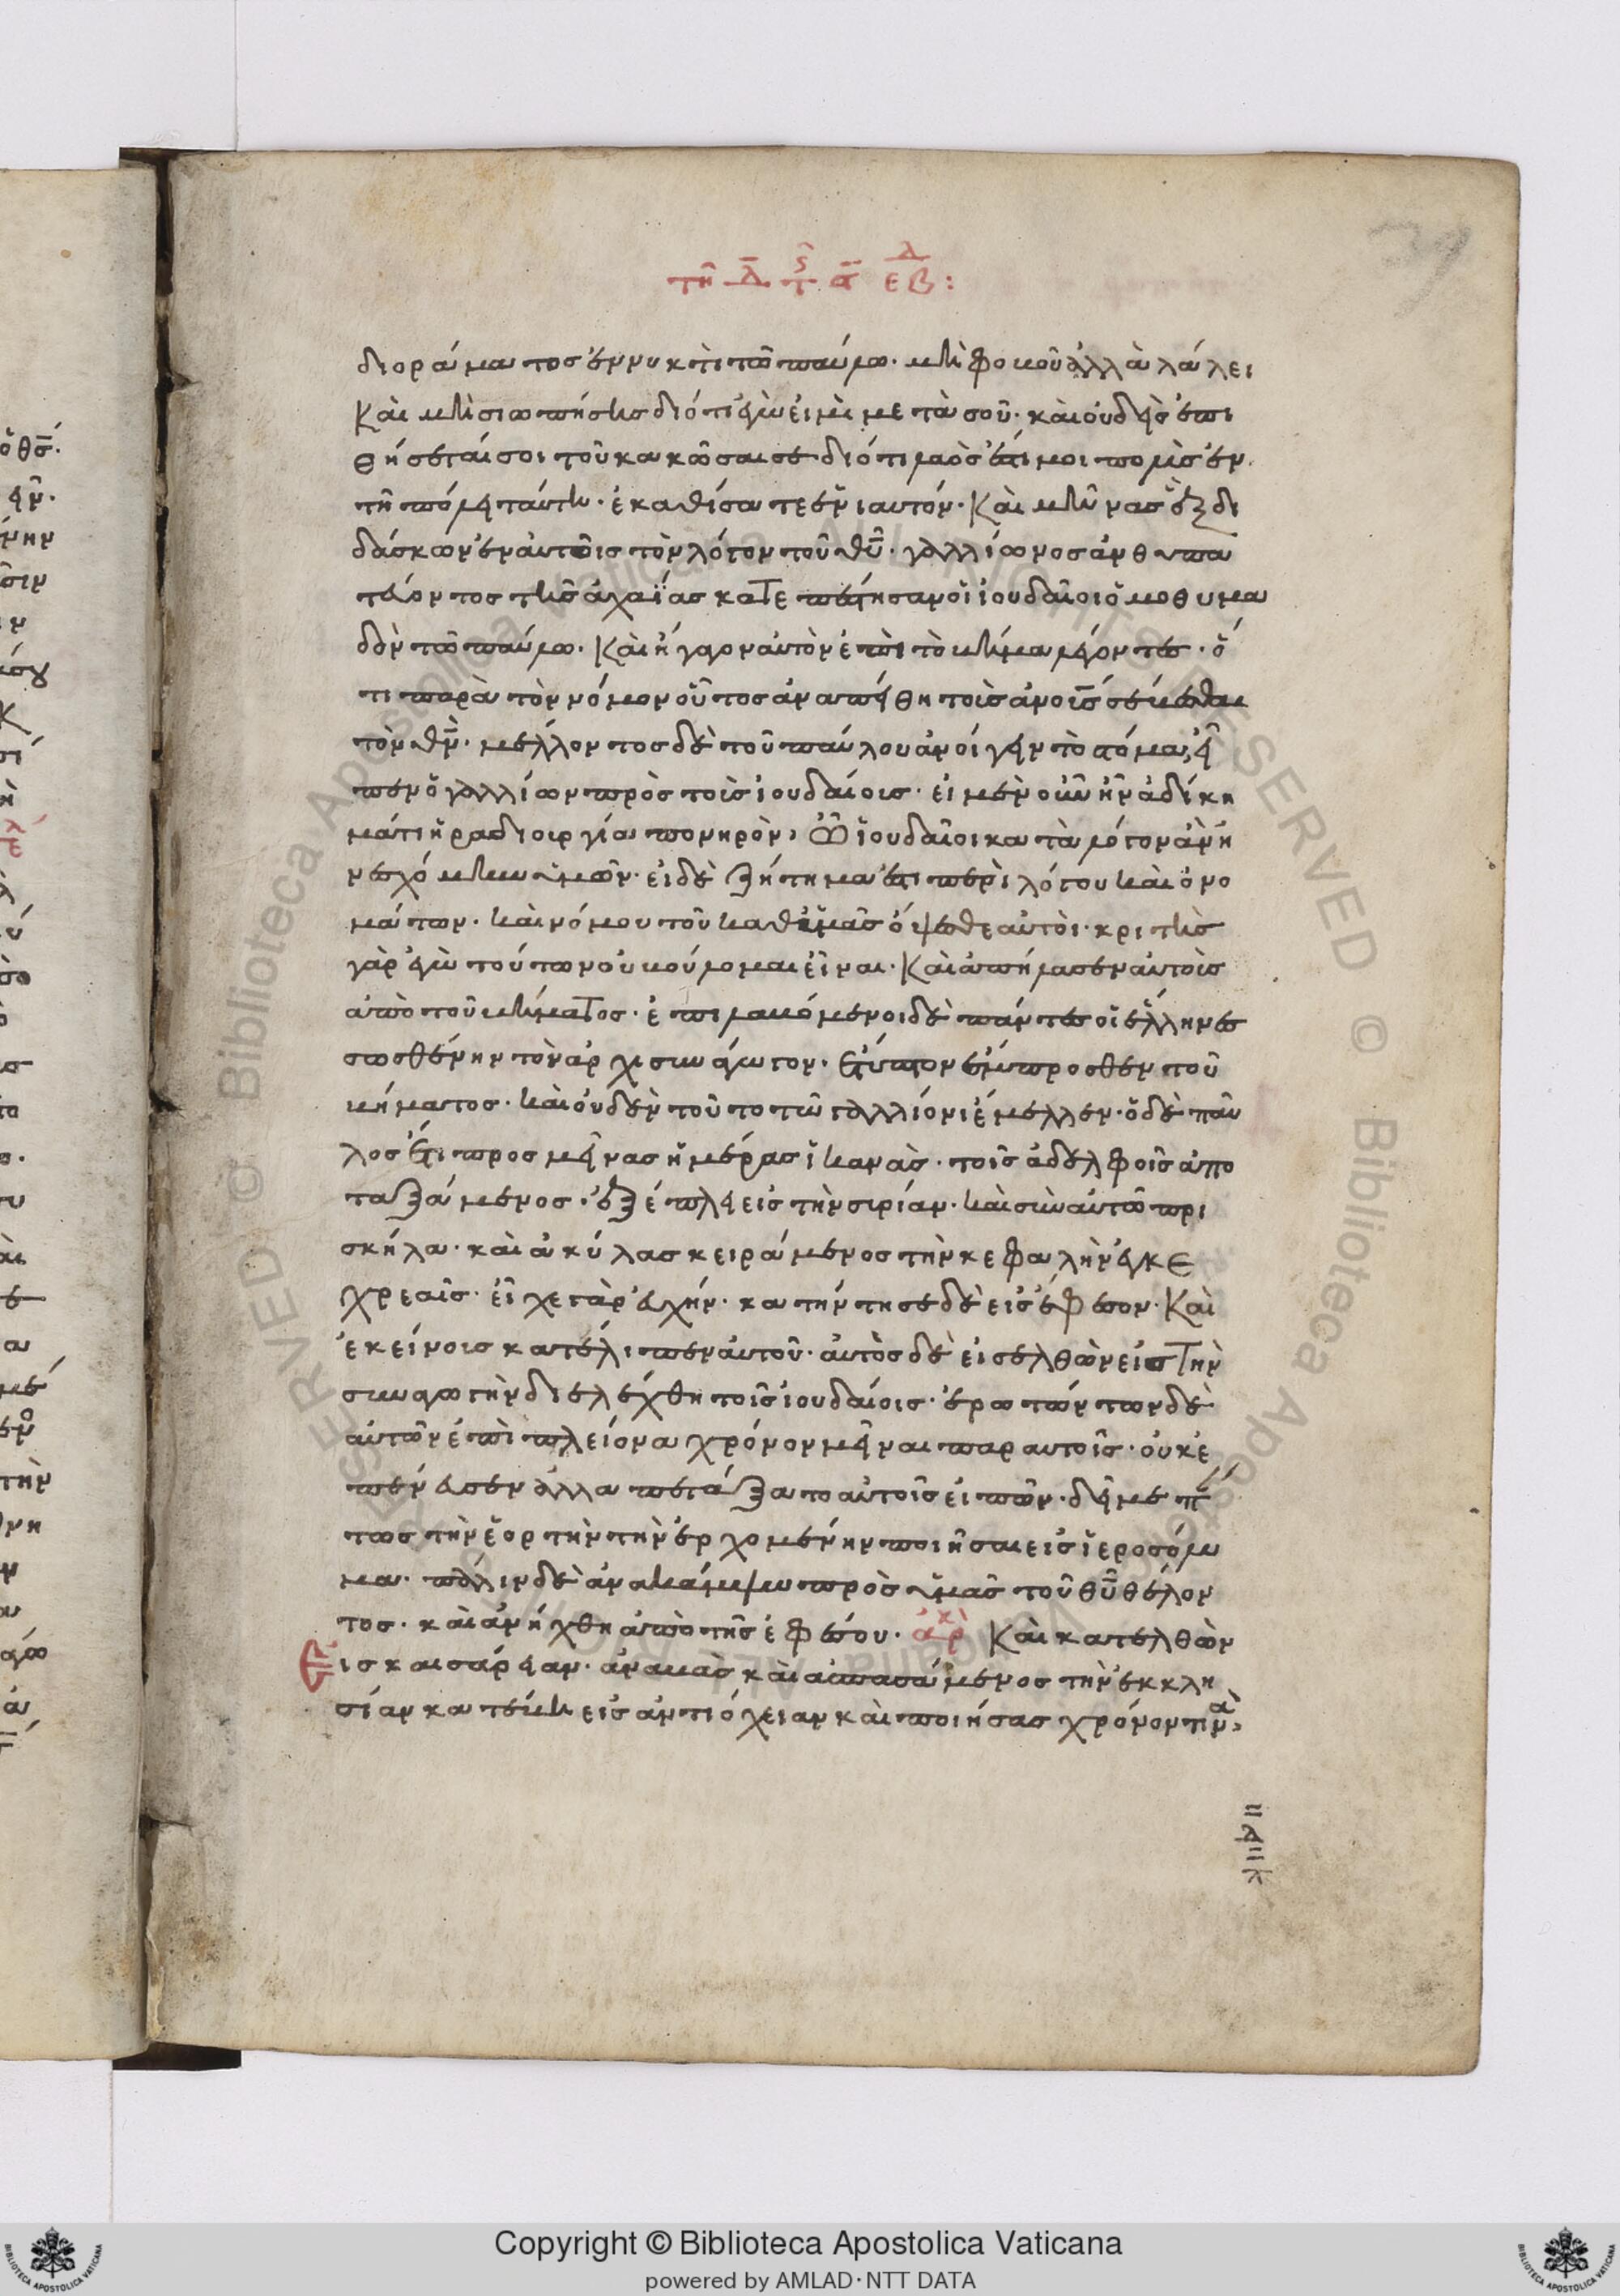 τῆ δ̅ τ ς̑ α̅ ε λ β :
39
διοράματος ἐν νυκτὶ τῶ παύλω· μὴ φοβοῦ ἀλλὰ λάλει
καὶ μὴ σιωπήσης διότι ἐγὼ εἰμὶ μετὰ σοῦ· καὶ οὐδεὶς ἐπι
θήσεταί σοι τοῦ κακῶσαι σε διότι λαός ἐστί μοι πολὺς ἐν
τῆ πόλει ταύτη· ἐκάθισα τε ἐνιαυτόν· καὶ μῆνας ἓξ δι
δάσκων ἐν αὐτοῖς τὸν λόγον τοῦ θυ̅· γαλλίωνος ἀνθυπα
τεύοντος τῆς ἀχαΐας κατεπέστησαν οἱ ἰουδαῖοι ὁμοθυμα
δὸν τῶ παύλω· καὶ ἤγαγον αὐτὸν ἐπὶ τὸ βῆμα λέγοντες· ὅ
τι παρὰ τὸν νόμον οὗτος ἀναπείθη τοὶς ἀνοις̅ σέβεσθαι
τὸν θν̅· μέλλοντος δὲ τοῦ παύλου ἀνοίγειν τὸ στόμα, εἶ
πεν ὁ γαλλίων πρὸς τοὶς ἰουδαίοις· εἰ μὲν οὖν ἦν ἀδίκη
μά τι ἢ ραδιουργία πονηρὸν, ὦ ἰουδαῖοι κατὰ λόγον ἂν ἠ
νεσχόμην ὑμῶν· εἰ δὲ ζήτημα ἐστι περὶ λόγου καὶ ὀνο
μάτων· καὶ νόμου τοῦ καθ' ὑμᾶς ὄψεσθε αὐτοὶ· κριτὴς
γὰρ ἐγὼ τούτων οὐ βούλομαι εἶναι· καὶ ἀπήλασεν αὐτοὶς
ἀπὸ τοῦ βήματος· ἐπιλαβόμενοι δὲ πάντες οἱ ἕλληνες
σωσθένην τὸν ἀρχισυνάγωγον· ἔτυπτον ἔμπροσθεν τοῦ
βήματος· καὶ οὐδὲν τοῦτο τῶ γαλλίονι ἔμελλεν· ὁ δὲ παῦ
λος ἔτι προσμείνας ἡμέρας ἱκανὰς· τοῖς ἀδελφοῖς ἀπο
ταξάμενος· ἐξέπλει εἰς τὴν συρίαν· καὶ σὺν αὐτῶ πρι
σκήλα· καὶ ἀκύλας κειράμενος τὴν κεφαλὴν ἐν κε
χρεαῖς· εἶχε γὰρ εὐχήν· κατήντησε δὲ εἰς ἔφεσον· καὶ
ἐκείνοις κατέλιπεν αὐτοῦ· αὐτὸς δὲ εἰσελθὼν εἰς τὴν
συναγωγὴν διελέχθη τοῖς ἰουδαίοις· ἐρωτώντων δὲ
αὐτῶν ἐπὶ πλείονα χρόνον μεῖναι παρ αυτοῖς· οὐκ ἐ
πένευσεν ἀλλ ἀπετάξατο αὐτοῖς εἰπῶν· δεῖ με π
τως τὴν ἑορτὴν τὴν ἐρχομένην ποιῆσαι εἰς ἱεροσόλυ
μα· πάλιν δὲ ἀνακάμψω πρὸς ὑμᾶς τοῦ θυ̅ θέλον
τος· καὶ ἀνήχθη ἀπὸ τῆς ἐφέσου· ἀρχ καὶ κατελθὼν
εἰς καισάρειαν· ἀναβὰς καὶ ἀσπασάμενος τὴν ἐκκλη
σίαν κατέβη εἰς ἀντιόχειαν καὶ ποιήσας χρόνον τινὰ,
Copyright © Biblioteca Apostolica Vaticana
powered by AMLAD·NTT DATA